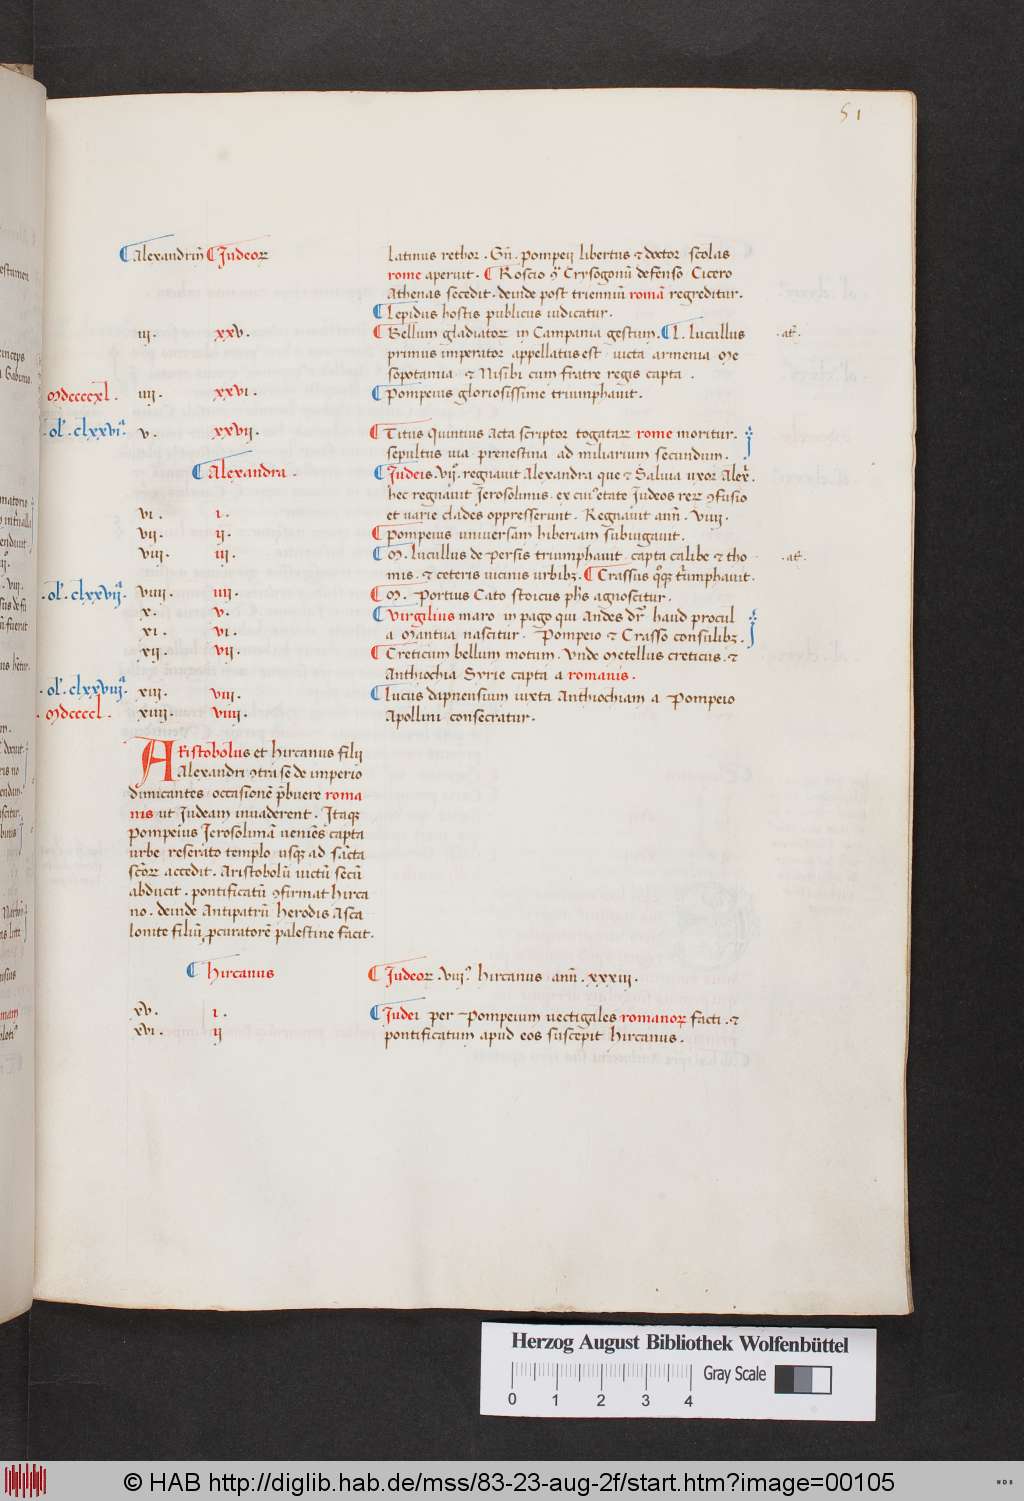 51
¶ Alexandrin̄ ¶ Judeoꝝ
latinus rethor . Gn̄ . pompeij libertus & doctor scolas
rome aperuit . ¶ Roscio ꝯͣ Crysogonū defenso Cicero
Athenas secedit . deinde post trienniū romā regreditur .
¶ Lepidus hostis publicus iudicatur .
iij . xxv . ¶ Bellum gladiatoꝝ in Campania gestum . ¶ L. Lucullus
primus imperator appellatus est . uicta armenia me
sopotamia . & Nisibi cum fratre regis capta .
mdccccxl . iiij . xxvi . ¶ Pompeius gloriosissime triumphauit .
. ol' . clxxvi . v . xxvij . ¶ Titus Quintius Acta scriptor togataꝝ rome moritur .
sepultus uia prenestina ad miliarium secundum .
¶ Alexandra . ¶ Judeis . vij . regnauit Alexandra que & Salina uxor Alex̄ .
hec regnauit Jerosolimis . ex cui᾽ etate Judeos reꝝ ꝯfusio
vi . i . et uarie clades oppresserunt . Regnauit ann̄ . viiij .
vii . ij . ¶ Pompeius uniuersam hiberiam subiugauit .
viij . iij . ¶ M . Lucullus de Persis triumphauit . capta calibe & tho
mis . & ceteris uicinis urbibꝫ . ¶ Crassus qꝫ triumphauit .
. ol' . clxxvij . viiij . iiij . ¶ M . Portius Cato stoicus ph̄s agnoscitur .
x . v . ¶ Virgilius maro in pago qui Andes dr̄ haud procul
xi . vi . a Mantua nascitur . Pompeio & Crasso consulibꝫ .
xij . vij . ¶ Creticum bellum motum . Vnde Metellus creticus . &
Anthiochia Syrie capta a romanis .
. ol' . clxxviij . xiij . viij . ¶ Lucus dapnensium iuxta Anthiochiam a Pompeio
. mdccccl . xiiij . viiij . Apollini consecratur .
ARistobolus et hircanus filij
Alexandri ꝯtra se de imperio
dimicantes occasionē p̄buere roma
nis ut Judeam inuaderent . Itaqꝫ
pompeius Jerosolimā ueniēs capta
urbe reserato templo usqꝫ ad sācta
sctōꝝ accedit . Aristobolū uictū secū
abducit . pontificatū ꝯfirmat hirca
no . deinde Antipatrū herodis Asca
lonite filiū ꝓcuratorē palestine facit .
¶ hircanus ¶ Judeoꝝ . viij . hircanus ann̄ . xxxiiij .
xv . i . ¶ Judei per Pompeium uectigales romanoꝝ facti . &
xvi . ij pontificatum apud eos suscepit hircanus .
Herzog August Bibliothek Wolfenbüttel
Gray Scale
0 1 2 3 4
© HAB http://diglib.hab.de/mss/83-23-aug-2f/start.htm?image=00105